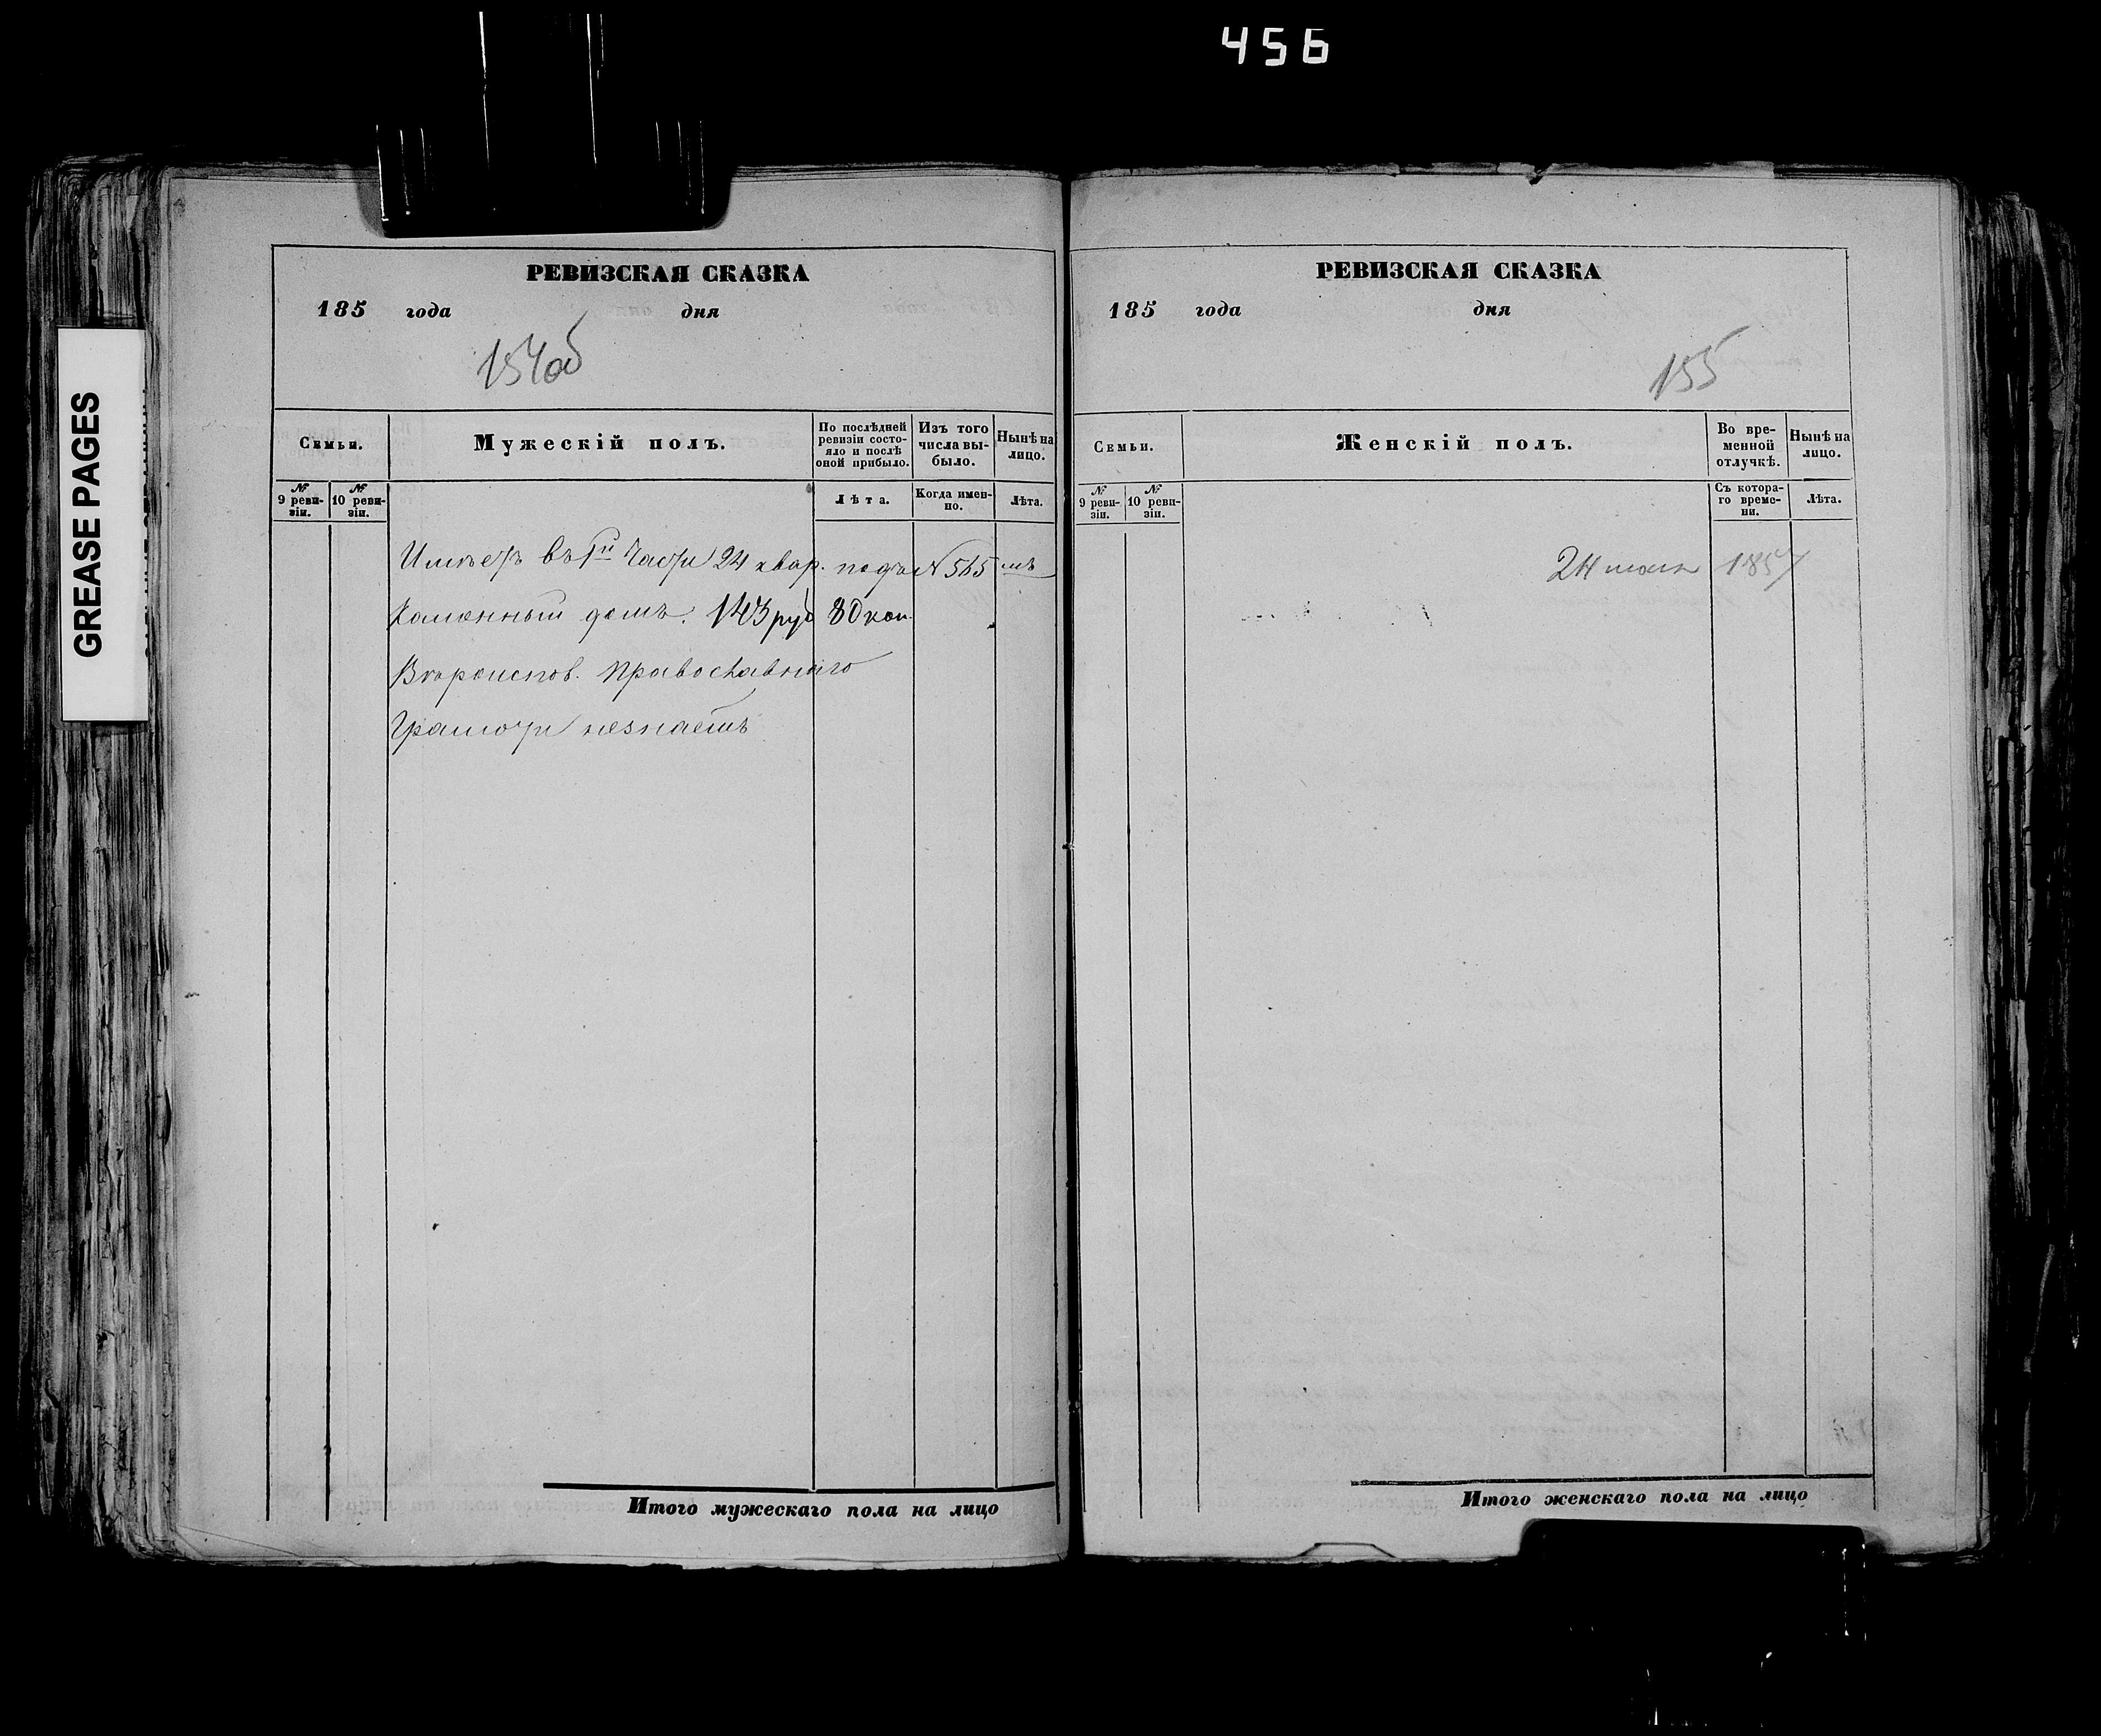 456
GREASE PAGES
РЕВИЗСКАЯ СКАЗКА
185 года дня
154об
Семьи.
Мужескій полъ.
По послѣдней ревизіи состояло и послѣ оной прибыло.
Изъ того числа выбыло.
Нынѣ на лицо.
№ 9 ревизіи.
№ 10 ревизіи.
Лѣта.
Когда именно.
Лѣта.
Имѣетъ въ 1й части 24 квар. подъ № 565 мъ
каменный домъ. 143 руб 80 коп.
Вѣроиспов. Православнаго
Грамоти незнаетъ
Итого мужескаго пола на лицо
РЕВИЗСКАЯ СКАЗКА
185 года дня
155
Семьи.
Женскій полъ.
Во временной отлучкѣ.
Нынѣ на лицо.
№ 9 ревизіи.
№ 10 ревизіи.
Съ котораго времени.
Лѣта.
24 1857
Итого женскаго пола на лицо